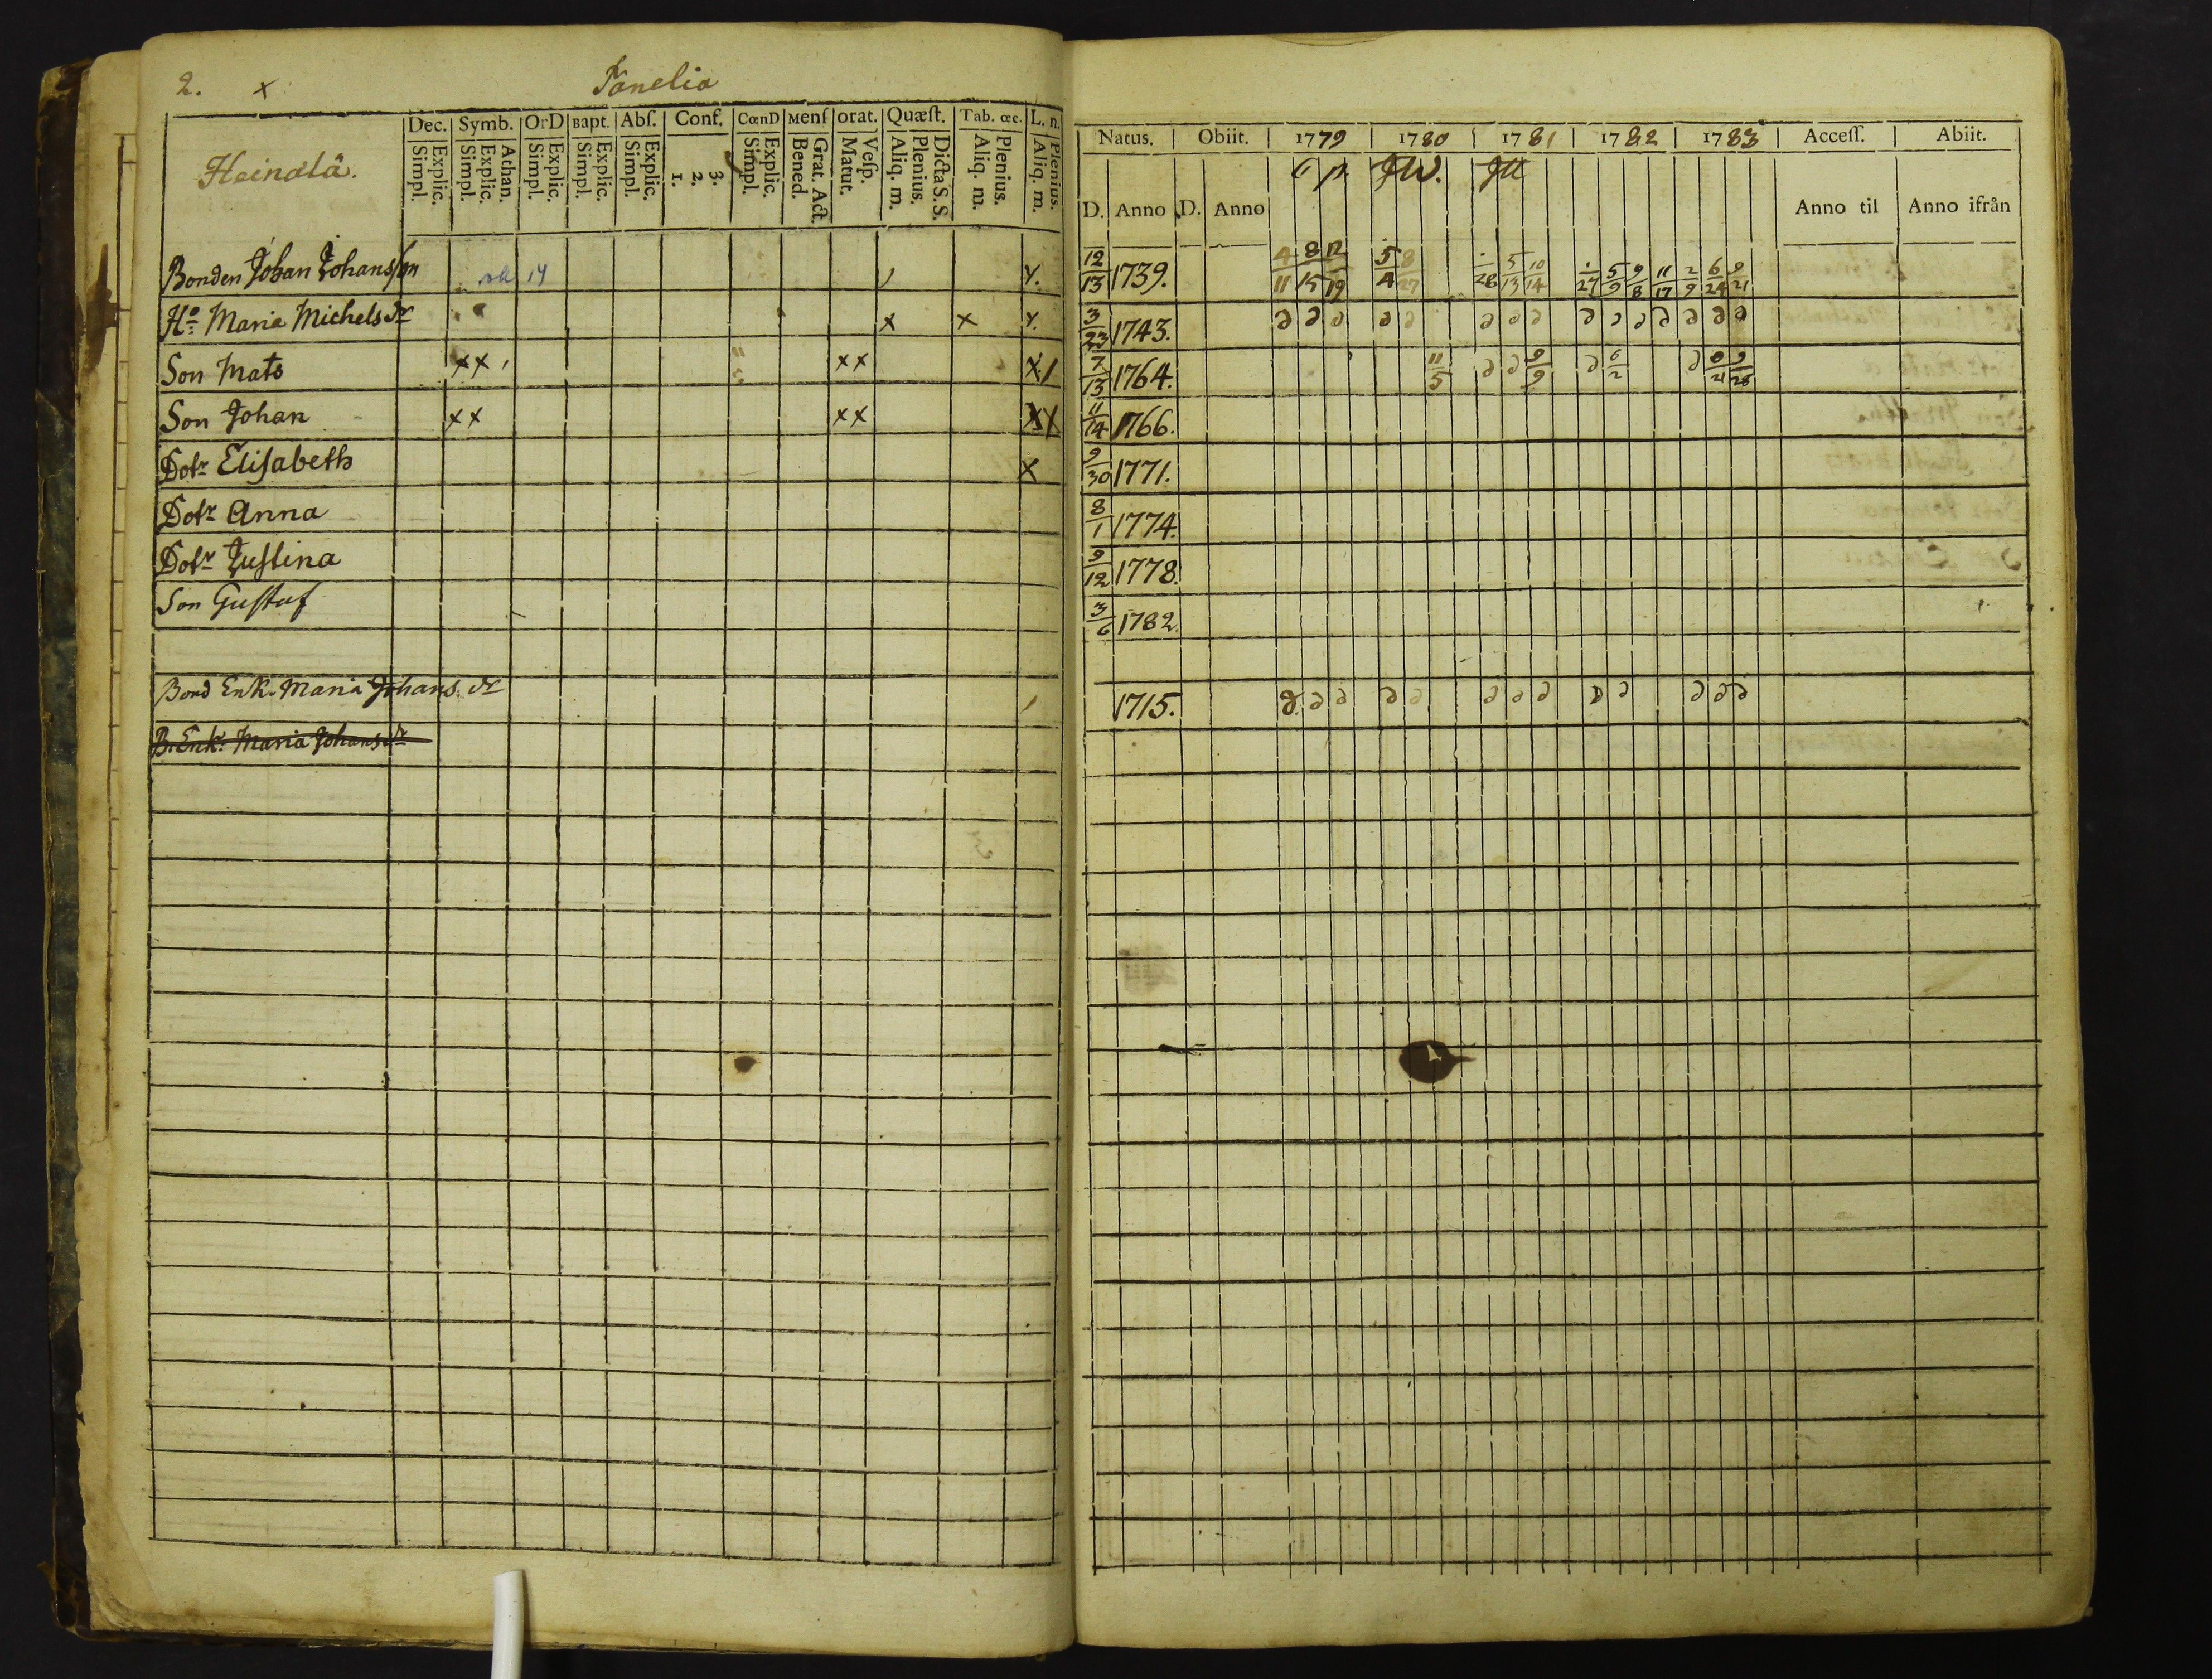 2. x Tanelia
Heinola.
Dec. Symb. OrD Bapt. Abſ. Conf. CœnD Menſ orat. Quæſt. Tab. œc. L. n.
Explic. Simpl. Athan. Explic. Simpl. Explic. Simpl. Explic. Simpl. Explic. Simpl. 3. 2. 1. Explic. Simpl. Grat. Act. Bened. Veſp. Matut. Dicta S. S. Plenius. Aliq. m. Plenius. Aliq. m. Plenius. Aliq. m.
Natus. Obiit. 1779 1780 1781 1782 1783 Acceſſ. Abiit.
D. Anno D. Anno Anno til Anno ifrån
Bonden Johan Johansson 12/13 1739. 4/11 8/15 12/19 5/4 8/27 5/13 10/14 5/9 9/8 11/17 2/9 6/24 9/21
Ho: Maria Michelsdr x x 3/23 1743.
Son Mats xx xx 7/13 1764. 11/5
Son Johan xx xx 11/14 1766.
Dotr Eliſabeth x 9/30 1771.
Dotr Anna 8/1 1774.
Dotr Juſtina 9/12 1778.
Son Guſtaf 3/6 1782.
Bond Enk. Maria Johans dr 1715.
B. Enk. Maria Johansdr